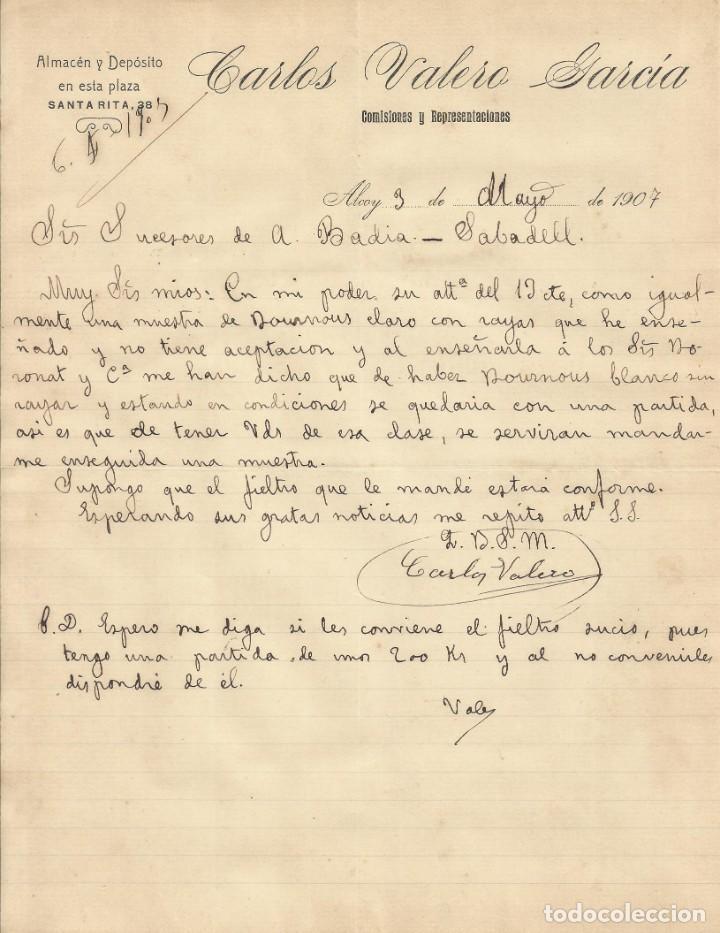 Almacén y Depósito
en esta plaza
SANTA RITA, 38
Carlos Valero García
Comisiones y Representaciones
Alcoy 3 de Mayo de 1907
Srs Sucesores de A. Badia. - Sabadell.
Muy Srs mios: En mi poder su attª del 1º cte, como igual-
mente una muestra de Bournous claro con rayas que he ense-
ñado y no tiene aceptacion y al enseñarla á los Srs Bo-
ronat y Cª me han dicho que de haber Bournous blanco sin
rayar y estando en condiciones se quedaria con una partida,
asi es que de tener Vds de esa clase, se serviran mandar-
me enseguida una muestra.
Supongo que el fieltro que le mandé estará conforme.
Esperando sus gratas noticias me repito attº S.S.
Q. B. S. M.
Carlos Valero
P. D. Espero me diga si les conviene el fieltro sucio, pues
tengo una partida de unos 200 Ks y al no convenirles
dispondré de él.
Vale
todocoleccion